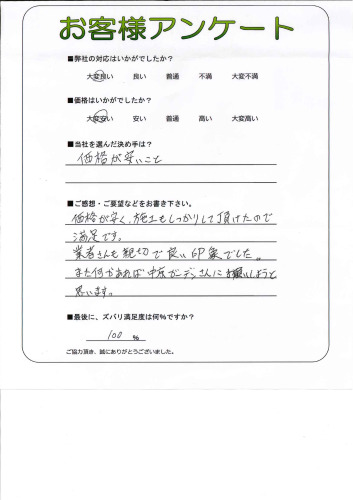 お客様アンケート
■弊社の対応はいかがでしたか?
大変良い 良い 普通 不満 大変不満
■価格はいかがでしたか?
大変安い 安い 普通 高い 大変高い
■当社を選んだ決め手は?
価格が安いこと
■ご感想・ご要望などをお書き下さい。
価格が安く、施工もしっかりして頂けたので
満足です。
業者さんも親切で良い印象でした。
また何かあれば中京ガーデンさんにお願いしようと
思います。
■最後に、ズバリ満足度は何%ですか?
100 %
ご協力頂き、誠にありがとうございました。